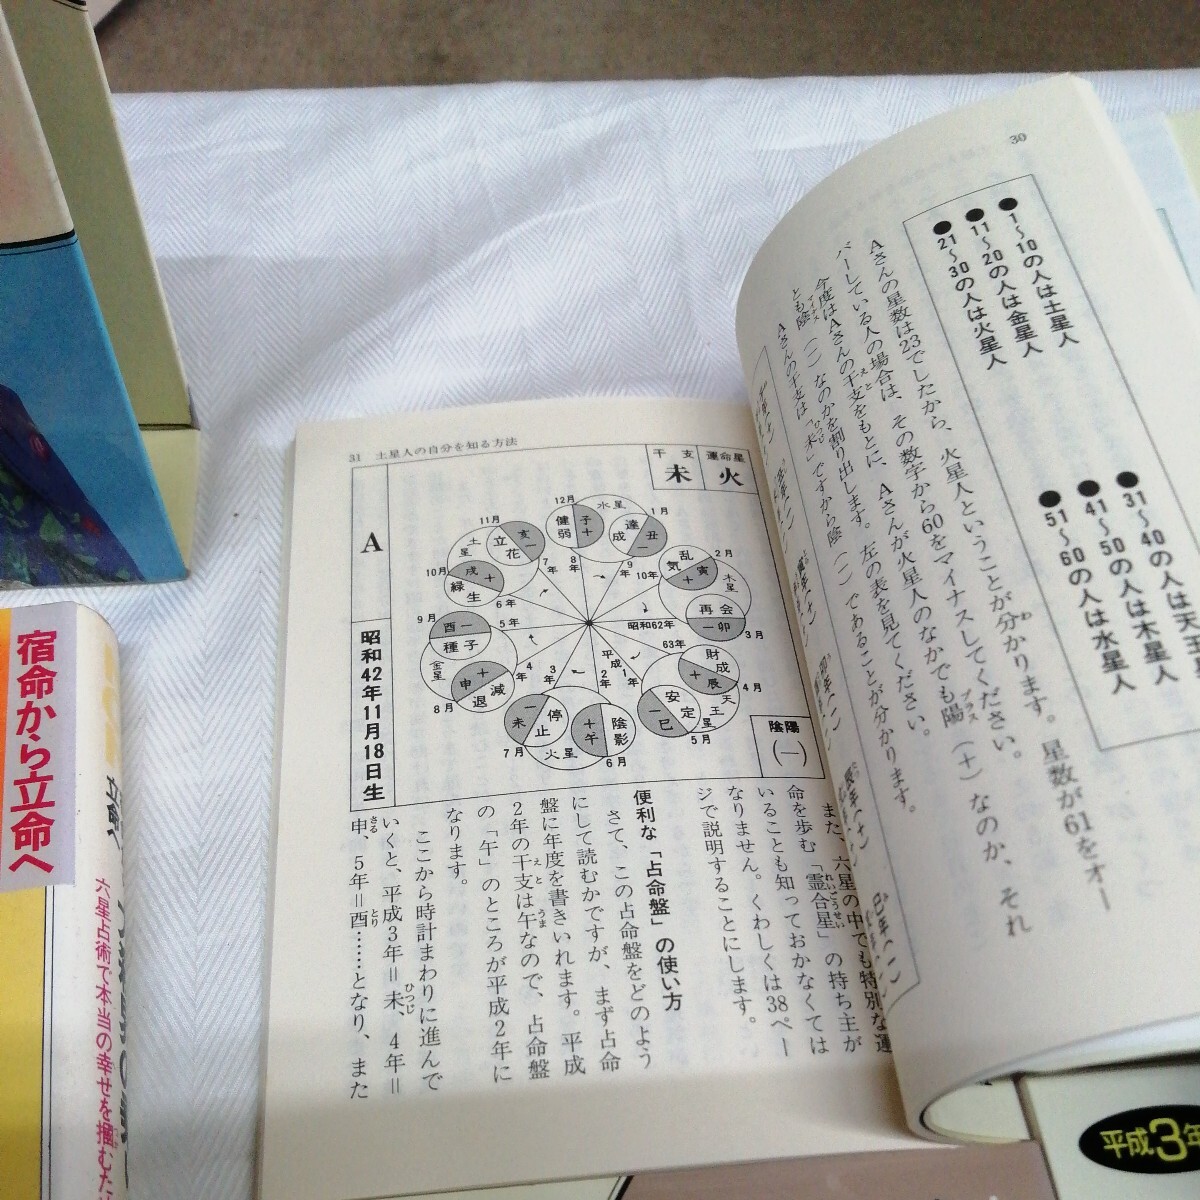 30
●1〜10の人は土星人
●11〜20の人は金星人
●21〜30の人は火星人
●31〜40の人は天王
●41〜50の人は木星人
●51〜60の人は水星人
Aさんの星数は23でしたから、火星人ということが分かります。星数が61をオー
バーしている人の場合は、その数字から60をマイナスしてください。
今度はAさんの干支をもとに、Aさんが火星人のなかでも陽（＋）なのか、それ
とも陰（－）なのかを割り出します。左の表を見てください。
Aさんの干支は「未」ですから陰（－）であることが分かります。
31 土星人の自分を知る方法
干支
未
運命星
火
A
昭和42年11月18日生
陰陽
（－）
12月
健弱
子
＋
水星
1月
達成
丑
－
2月
乱気
寅
＋
木星
再会
－卯
3月
財成
＋
辰
4月
天王星
安定
－
巳
5月
陰影
＋
午
6月
火星
停止
－
未
7月
減退
＋
申
8月
金星
種子
酉－
9月
緑生
戌
＋
10月
土星
立花
亥
－
11月
昭和62年
63年
平成1年
2年
3年
4年
5年
6年
7年
8年
9
10年
また、六星の中でも特別な運
命を歩む「霊合星」の持ち主が
いることも知っておかなくては
なりません。くわしくは38ペー
ジで説明することにします。
便利な「占命盤」の使い方
さて、この占命盤をどのよう
にして読むかですが、まず占命
盤に年度を書きいれます。平成
2年の干支は午なので、占命盤
の「午」のところが平成2年に
なります。
ここから時計まわりに進んで
いくと、平成3年＝未、4年＝
申、5年＝酉……となり、また
宿命から立命へ
立命へ
六星占術で本当の幸せを掴むた
平成3年